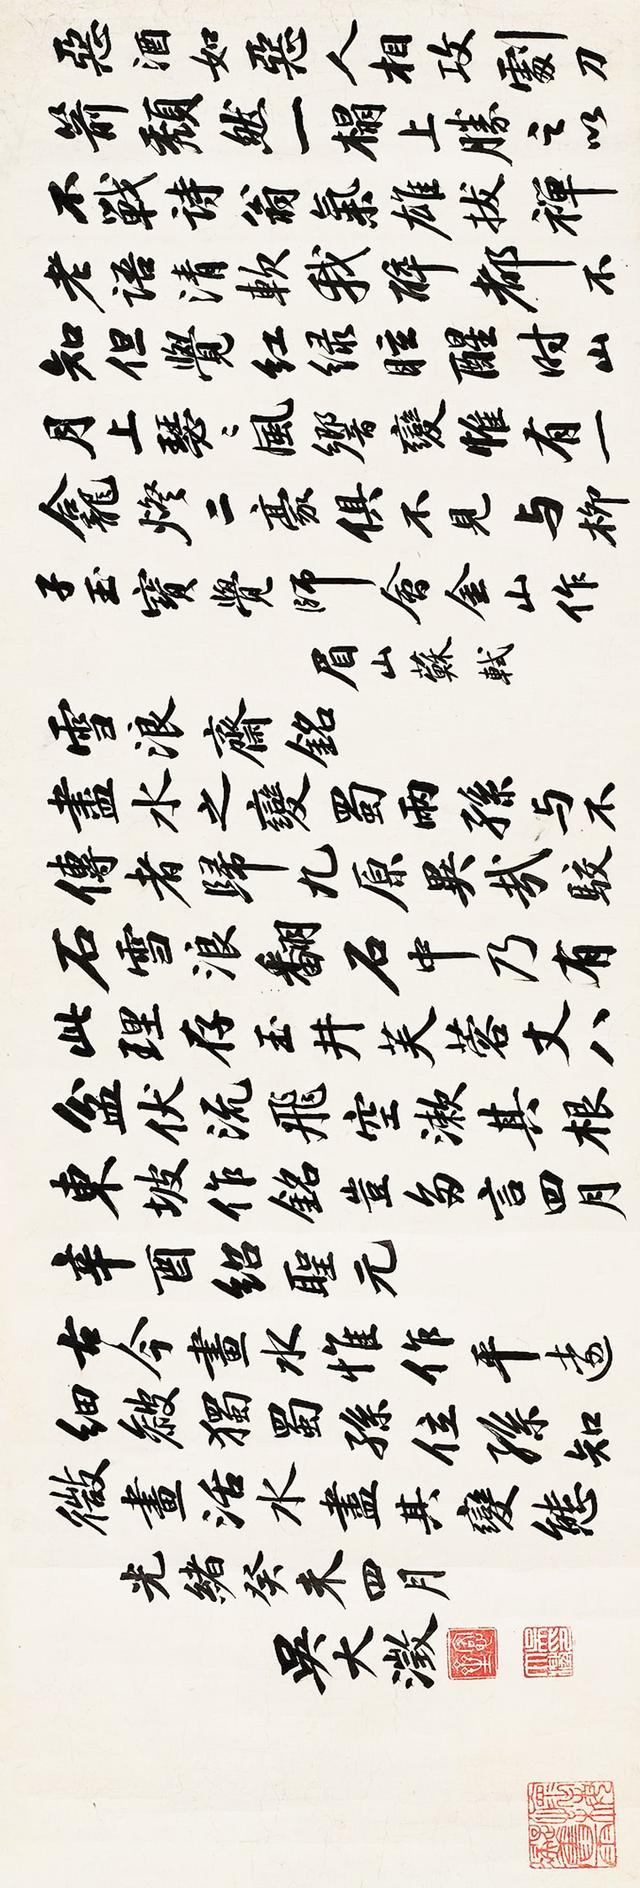 惡酒如惡人相攻劇刀
箭頹然一榻上勝之以
不戰詩翁氣雄拔禪
老語清軟我醉都不
知但覺紅綠眩醒时山
月上瑟〻風響變惟有一
龕燈二豪俱不見与柳
子玉寶覺師會金山作
眉山蘇軾
雪浪齋銘
盡水之變蜀兩孫与不
傳者歸九原異哉駮
石雪浪翻石中乃有
此理存玉井芙蓉丈八
盆伏流飛空漱其根
東坡作銘豈多言四月
辛酉紹聖元
古今畫水惟作平遠
細皴獨蜀孫位孫知
微畫活水盡其變態
光緒癸未四月
吳大澂